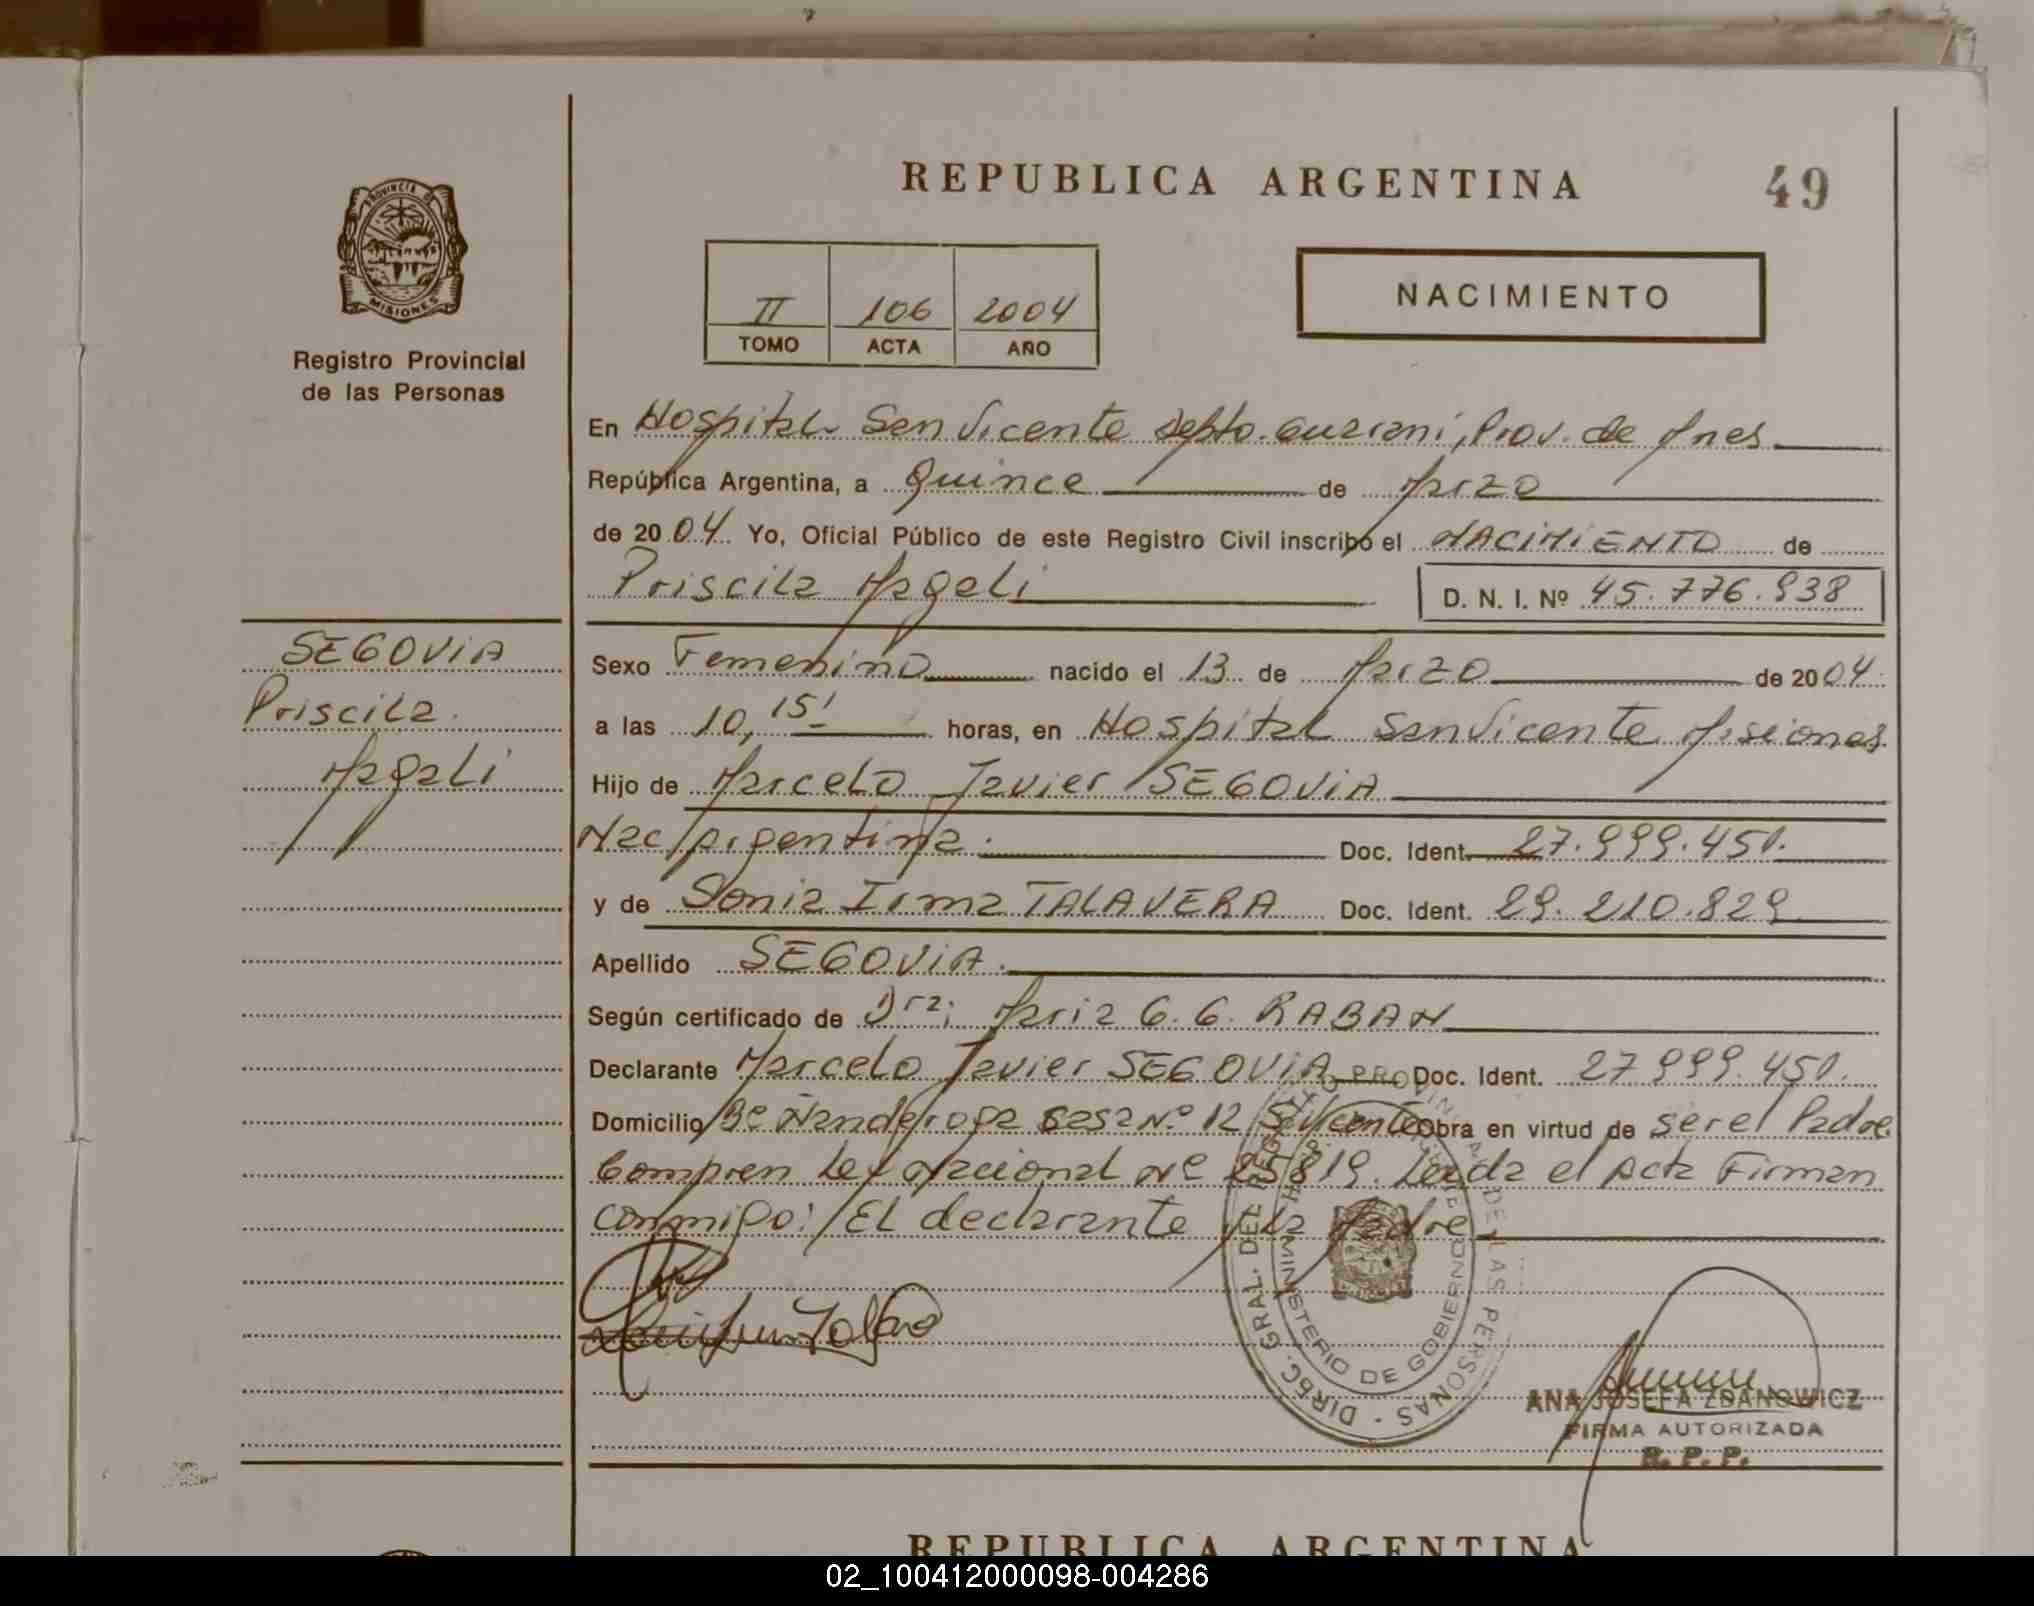 REPUBLICA ARGENTINA
49
PROVINCIA DE
MISIONES
Registro Provincial
de las Personas
II 106 2004
TOMO ACTA AÑO
NACIMIENTO
En Hospital San Vicente Depto. Guarani, Prov. de Mnes
República Argentina, a Quince de Marzo
de 2004 Yo, Oficial Público de este Registro Civil inscribo el NACIMIENTO de
Priscila Magali
D. N. I. Nº 45.776.938
SEGOVIA
Priscila
Magali
Sexo Femenino nacido el 13 de Marzo de 2004
a las 10,15' horas, en Hospital San Vicente Misiones
Hijo de Marcelo Javier SEGOVIA
Nac/Argentina Doc. Ident. 27.999.451.
y de Sonia Irma TALAVERA Doc. Ident. 29.210.829
Apellido SEGOVIA.
Según certificado de Dra; Maria G. G. RABAN
Declarante Marcelo Javier SEGOVIA Doc. Ident. 27999.451.
Domicilio Bº Ñanderoga casa Nº 12 S. Vicente Obra en virtud de ser el Padre
Ley Nacional Nº 25819. Leida el Acta Firman
conmigo: El declarante y la Madre
DIREC. GRAL. DEL REGISTRO PROVINCIAL DE LAS PERSONAS
MINISTERIO DE GOBIERNO
ANA JOSEFA ZDANOWICZ
FIRMA AUTORIZADA
R. P. P.
REPUBLICA ARGENTINA
02_100412000098-004286